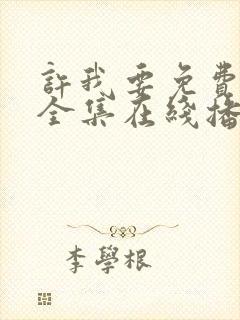 許我要免費
全集在綫播
李學根